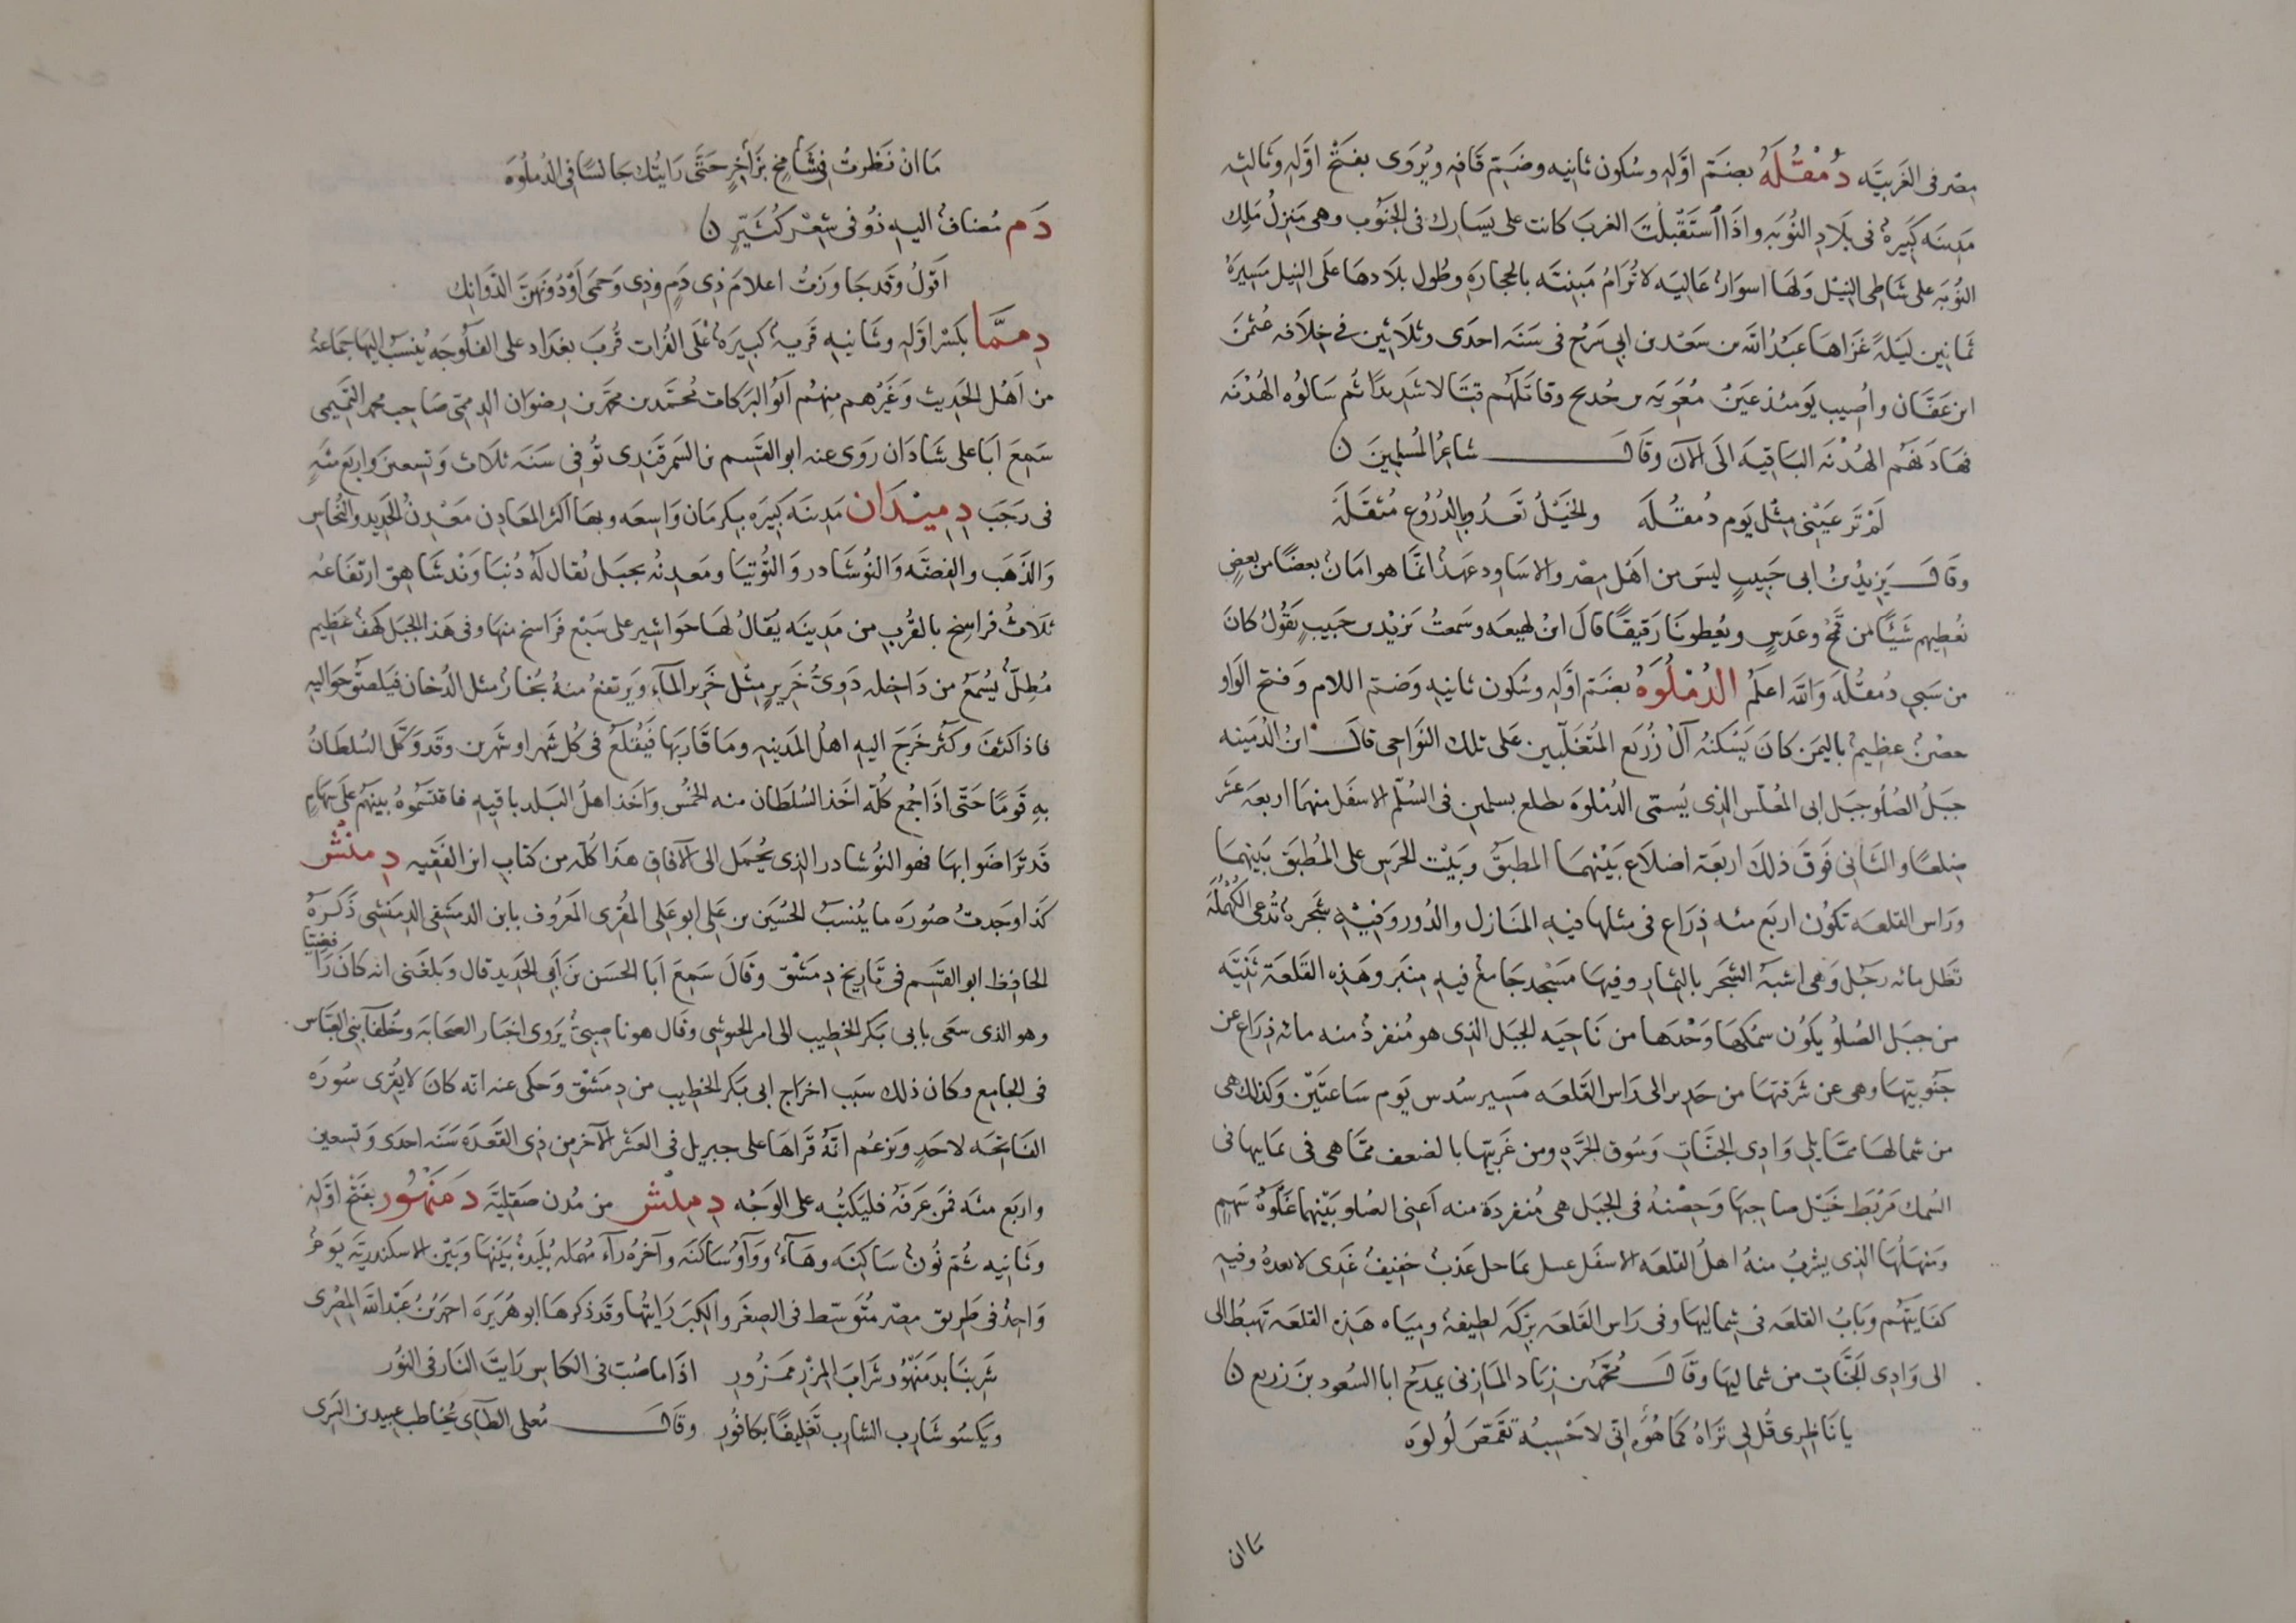 مصر فى الغربيَّه دُمْقُلَهُ بضمّ اوّله وسُكون ثانيه وضمّ قافه ويُروى بفتح اوّله وثالثه
مدينه كبيرهُ فى بلاد النُوبَه واذا استقبلْتَ الغربَ كانت على يسارك فى الجنوب وهى منزلُ ملك
النُوبَه على شاطى النيل ولها اسوارُ عاليه لا تُرامُ مبنيّه بالحجاره وطُول بلادها على النيل مسيرة
ثمانين ليلةً غزاها عبدُ الله بن سعد بن ابى سرح فى سنه احدى وثلاثين فى خلافه عُثمن
ابن عفّان واُصيب يومئذ عينُ مُعويه بن حُديج وقاتلهم قتالا شديدًا ثم سالوُه الهُدْنَه
فهادنهُم الهُدْنَه الباقيَه الى الآن وقال شاعرُ المُسلمينَ
لَمْ تَر عَيْنى مثْل يَوم دُمقُلَه والخَيْلُ تَعدُو بالدُرُوع مُثقَلَه
وقال يزيدُ بنُ ابى حَبيبٍ ليسَ بين اهَل مِصر والاساود عَهدُ انما هو امانُ بعضنا من بعضٍ
نُعطيهم شَيئًا من قمحْ وعدسٍ ويُعطونا رقيقًا قالَ ابنُ لهيعه وسمعتُ يزيْد بن حَبيبٍ يَقُولُ كانَ
من سَبى دُمقُله وَالله اعلمُ الدُمْلُوَهُ بضمّ اوّله وسُكون ثانيه وَضمّ اللام وفتح الوَاو
حصْنُ عظيمُ باليمَن كانَ يَسْكنُه آلُ زُريَع المُتغلّبين عَلى تلك النَواحى قال ابنُ الدُمينه
جبَلُ الصُلو جبَل ابى المُغلّس الذى يُسمّى الدُمْلوَه يطلع بسلمين فى السُلّم الاسفل منهما اربعهَ عشَر
ضِلعًا والثانى فَوقَ ذلكَ اربعَة اضلاع بَيْنهما المطبَقُ وبَيْت الحرَس على المُطبَق بَينهما
ورَاس القلعَه يَكوُن اربَع مئه ذِرَاع فى مثلها فيه المنَازل والدُور وفيْه شجَرهُ تُدعى الكُهْمُلَه
تظل مائه رجُل وَهى اشبَهُ الشجَر بالثمار وفيها مَسْجد جَامعُ فيه منبَر وهَذه القَلعَة ثنيَّه
من جبَل الصُلوُ يكُون سمُكها وَحْدَها من نَاحيَه الجبَل الذى هو مُنفردُ منه مائه ذِرَاع عن
جَنُوبيّها وهى عن شرقيّها من حَدير الى رَاس القلعَه مَسير سُدس يَوم سَاعتَيْن وَكذلكَ هى
من شمالها ممّا يلى وَادى الجنّات وَسُوق الجُرّه ومن غربيّها بالضعف ممّا هى فى يمانيها فى
السُمك مَرْبَط خَيْل صاحبهَا وَحِصْنهُ فى الجبَل هى مُنفردَة منه اَعنى الصُلو بَيْنهما غَلوهُ سَهم
وَمنهَلُها الذى يشربُ منهُ اهلُ القلعَه الاسفَل عسل بماجل عَذبُ خفيفُ غَدى لا بعدهُ وفيه
كفايَتهُم وَبَابُ القلعَه فى شماليها وفى رَاس القَلعَه بِركَه لطيفهُ ومياه هَذه القلعَه تهبُط الى
الى وَادى الجنَّات من شماليها وقال مُحمّد بن زياد المازنى يمدَحُ ابا السُعود بنَ زريع
يا نَاظِرى قُل لى تراهُ كَما هُوَه انّى لاحْسبُه تقمّصَ لُولوَه
ما ان
مَا انْ نَظرتُ فى شَامخٍ بزاخرٍ حَتّى رَايتُك جَالسًا فى الدُملُوَه
دَم مُضافُ اليه ذوُ فى شِعْر كُثَيّرٍ
اَقولُ وقَد جَاوَزتُ اعلامَ ذى دَمٍ وَذى وَحمى اَوْ دُونَهنّ الدَوَانِك
دِمِمَّا بكَسْر اوّله وثَانيه قَريهُ كَبيرَهُ عَلَى الفُرات قُربَ بغداد على الفلّوجَه يُنسَبُ اليها جَماعهُ
من اَهْل الحَديث وَغَيْرهم منهُم ابَوُ البَركات مُحمّد بن محمّد بن رضوَان الدممّى صَاحب محمد التَميمى
سَمعَ ابَا على شَاذان رَوَى عنه ابو القَسم بن السَمرقَندى تُوُفى سَنَه ثلاث وَتسعينَ وَاربَع مئه
فى رَجَبَ دِمِيْندَان مَدينَه كَبيرَه بكرمَان وَاسعَه وبها اكثر المعَادن مَعْدنُ الحَديد والنُحاس
وَالذهَب والفضّه وَالنُوشَادر وَالتُوتيَا ومَعدنُه بجبَل يُقال لَه دُنبَاوَنْد شَاهِق ارتفَاعُه
ثلاثُ فرَاسخ بالقُرب من مَدينَه يُقالُ لهَا خَوَاشير على سَبْع فَرَاسخ منهَا وفى هَذا الجبَل كَهفُ عَظيم
مُظلّم يُسْمَعُ من دَاخله دَوىُّ خَريرٍ مثل خَرير المآءِ وَيرتفعُ منهُ بُخارُ مثل الدُخان فيَلصقُ حَواليه
فاذا كثفَ وَكثُر خَرجَ اليه اهلُ المَدينه ومَا قَاربَها فَيُقلَعُ فى كُل شَهر اوشهرين وقَد وَكّل السُلطَانُ
بهِ قَومًا حَتّى اذَا جُمع كُلّه اخَذ السُلطَان منه الخُمُس وَاَخَذ اهلُ البَلد باقيه فاقتسَمُوهُ بينهُم عَلى سهَامٍ
قَد تَراضَوا بهَا فهو النُوشادر الذى يُحمَل الى الآفاق هَذا كُلّه من كتاب ابن الفَقيه دِمنْش
كذا وَجدتُ صُورَه ما يُنسَبُ الحُسَين بن عَلى ابوعَلى المُقرى المعَرُوف بابن الدمشَقى الدمَنشى ذَكرهُ
الحافظ ابو القَسم فى تَاريخ دِمَشْق وقَالَ سَمعَ اَبَا الحسَن بنَ اَبى الحَديد قال وَبلغَنى انه كانَ رَافضيّا
وهو الذى سعَى بابى بَكر الخَطيب الى امر الجيوشى وقَال هو ناصبىُّ يَروى اخبَار الصحَابَه وخُلفآء بَنى العَبّاس
فى الجامع وكان ذلك سَبَب اخرَاج ابى بَكر الخطيب من دِمَشْق وَحكى عنه انّه كانَ لا يُقرى سُورَه
الفَاتحَه لاحَدٍ وَيزعُم انّهُ قَراهَا على جبريل فى العَشر الآخرِ من ذى القَعدَه سَنَه احدَى وَتسعين
واربَع مئَه فمَن عَرَفَهُ فليَكتُبْه على الوَجْه دِمِلْش من مُدن صَقليَّه دَمَنْهُور بفَتْح اوّله
وثَانيه ثُمّ نُونُ سَاكنَه وهَآءُ ووَاوُ سَاكنَه وآخرُه رَآءُ مُهمَله بُلَيدهُ بَيْنهَا وبَيْن الاسكندريَّه يَومُ
وَاحدُ فى طَريق مصر مُتوَسّط فى الصِغَر والكِبَر رَايتُها وقَد ذكرهَا ابو هُرَيرَه احمدُ بنُ عَبْدالله المِصْرى
شَربنَا بدَمَنْهُور شَرَابَ المزْر ممَزُور اذا ما صُبّ فى الكاس رَايتَ النَار فى النوُر
ويَكسُو شَاربَ الشارب تَغليفًا بكافُور وقال مُعلى الطآى يُخاطب عبيد بن السَرى